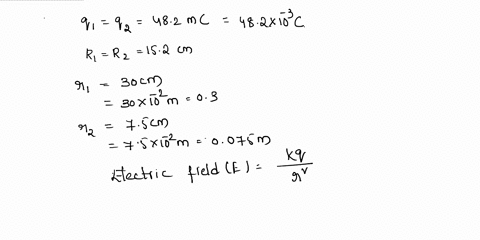 q₁ = q₂ = 48.2 mC = 48.2×10⁻³C
R₁ = R₂ = 15.2 cm
r₁ = 30cm
= 30×10⁻²m = 0.3
r₂ = 7.5cm
= 7.5×10⁻²m = 0.075m
Electric field (E) = kq/r²